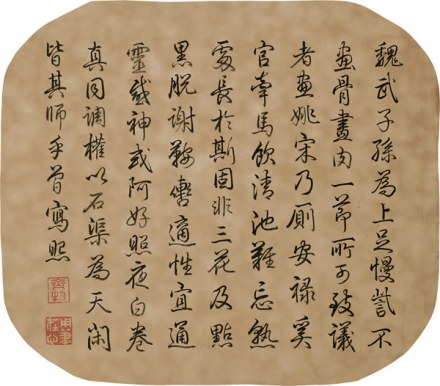 魏武子孫為上足慢訾不
畫骨畫肉一節所可致議
者畫姚宋乃廁安祿奚
官牽馬飲清池難忘熟
處長於斯固非三花及點
黑脫謝鞍轡適性宜通
靈感神或阿好照夜白卷
真同調權以石渠為天閑
皆其師手曾寫照